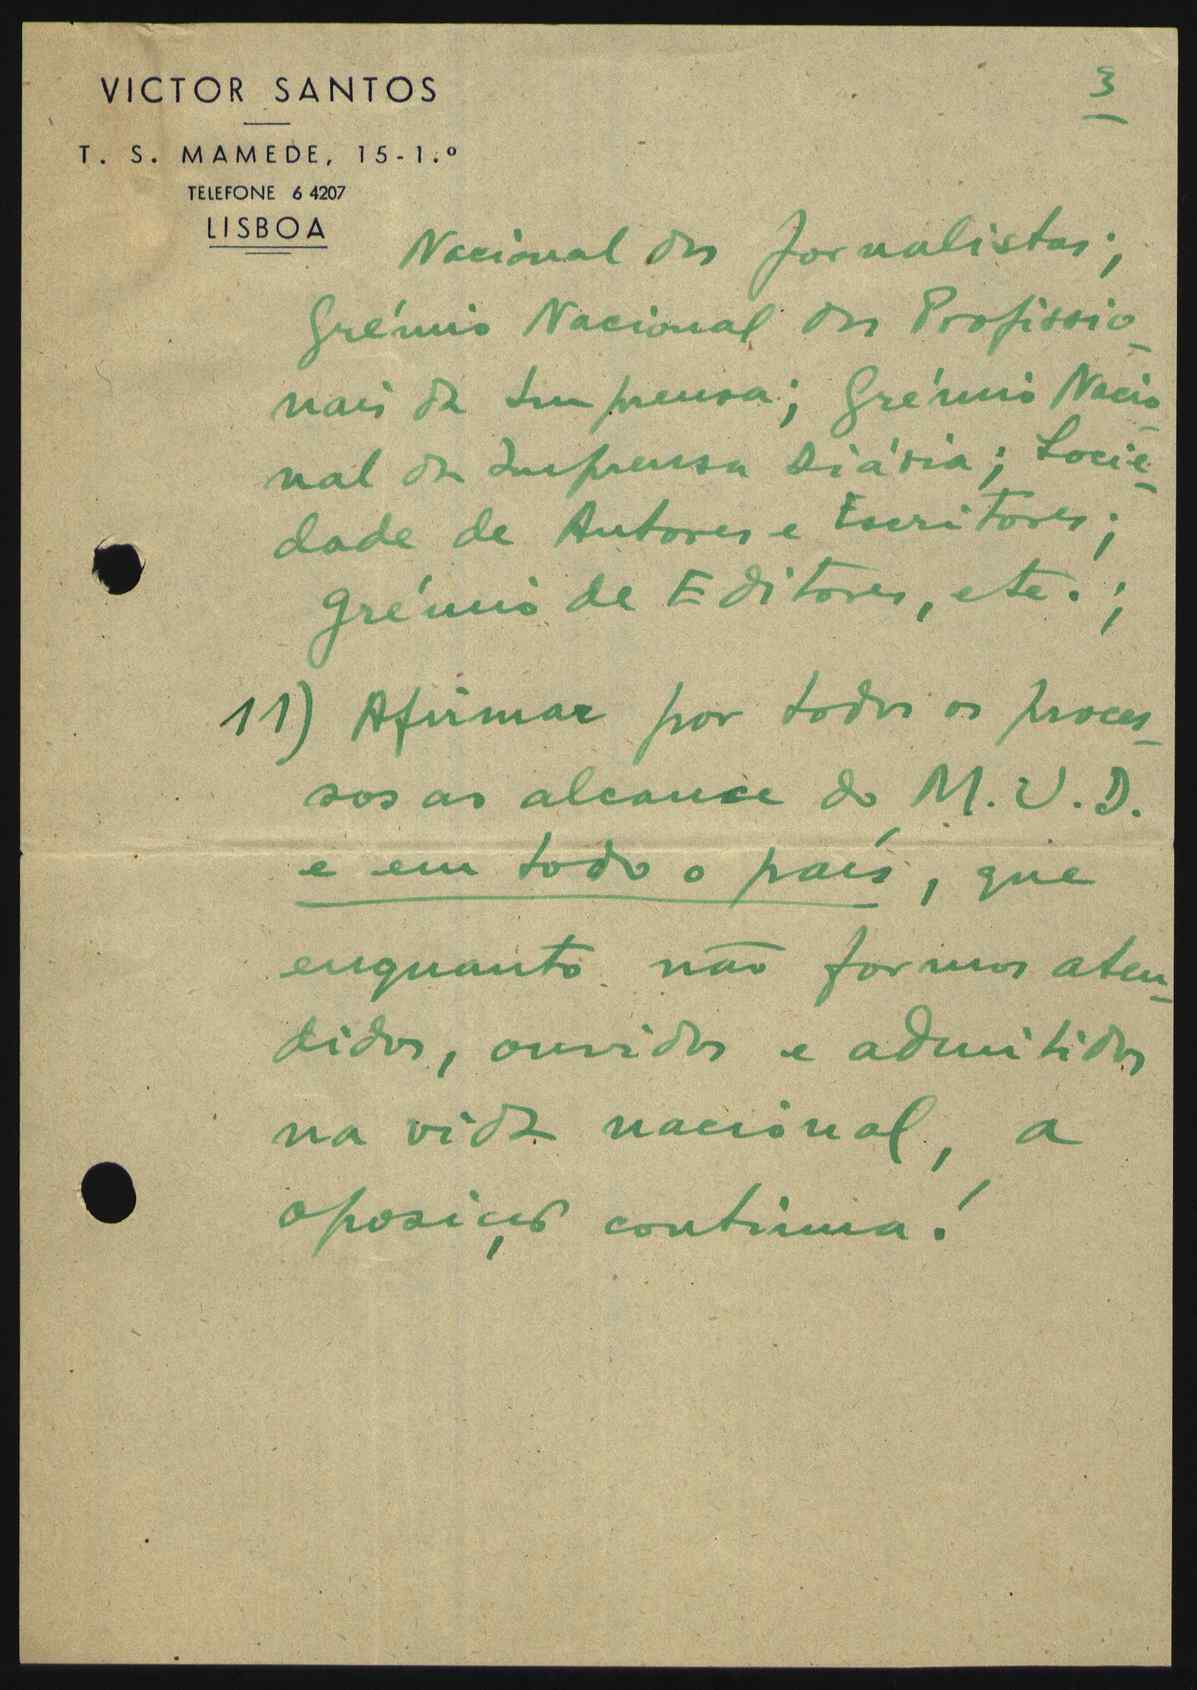 VICTOR SANTOS
T. S. MAMEDE, 15-1.º
TELEFONE 6 4207
LISBOA
3
Nacional dos Jornalistas;
Grémio Nacional dos Profissio-
nais da Imprensa; Grémio Nacio-
nal da Imprensa Diária; Socie-
dade de Autores e Escritores;
Grémio de Editores, etc.;
11) Afirmar por todos os proces-
sos ao alcance do M.U.D.
e em todo o país, que
enquanto não formos aten-
didos, ouvidos e admitidos
na vida nacional, a
oposição continua!